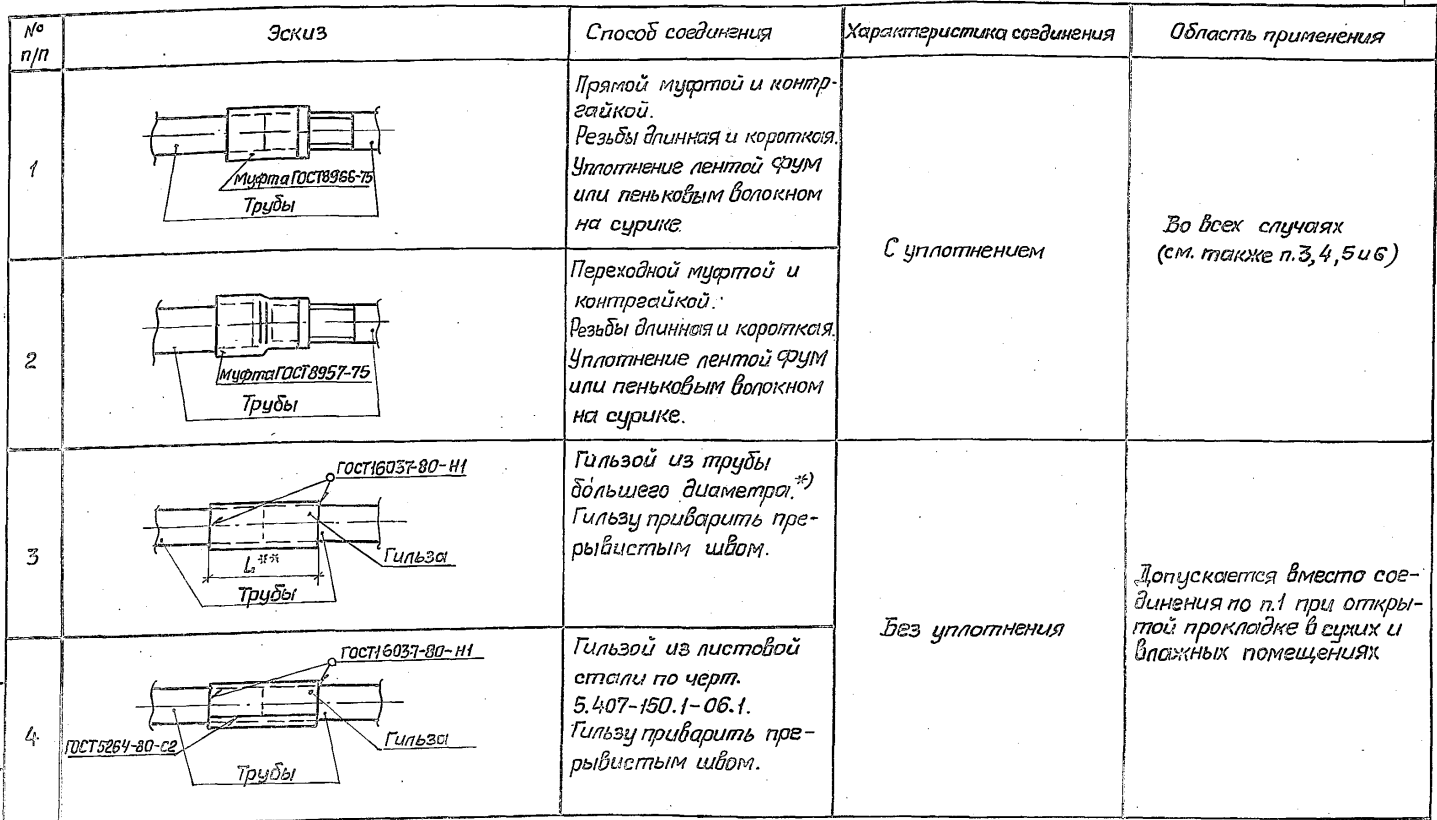 № п/п
Эскиз
Способ соединения
Характеристика соединения
Область применения
1
Муфта ГОСТ8966-75
Трубы
Прямой муфтой и контр-
гайкой.
Резьбы длинная и короткая.
Уплотнение лентой ФУМ
или пеньковым волокном
на сурике.
С уплотнением
Во всех случаях
(см. также п.3,4,5 и 6)
2
Муфта ГОСТ8957-75
Трубы
Переходной муфтой и
контргайкой.
Резьбы длинная и короткая.
Уплотнение лентой ФУМ
или пеньковым волокном
на сурике.
3
ГОСТ16037-80-Н1
Гильза
L**
Трубы
Гильзой из трубы
бóльшего диаметра.*)
Гильзу приварить пре-
рывистым швом.
Без уплотнения
Допускается вместо сое-
динения по п.1 при откры-
той прокладке в сухих и
влажных помещениях
4
ГОСТ16037-80-Н1
ГОСТ5264-80-С2
Гильза
Трубы
Гильзой из листовой
стали по черт.
5.407-150.1-06.1.
Гильзу приварить пре-
рывистым швом.